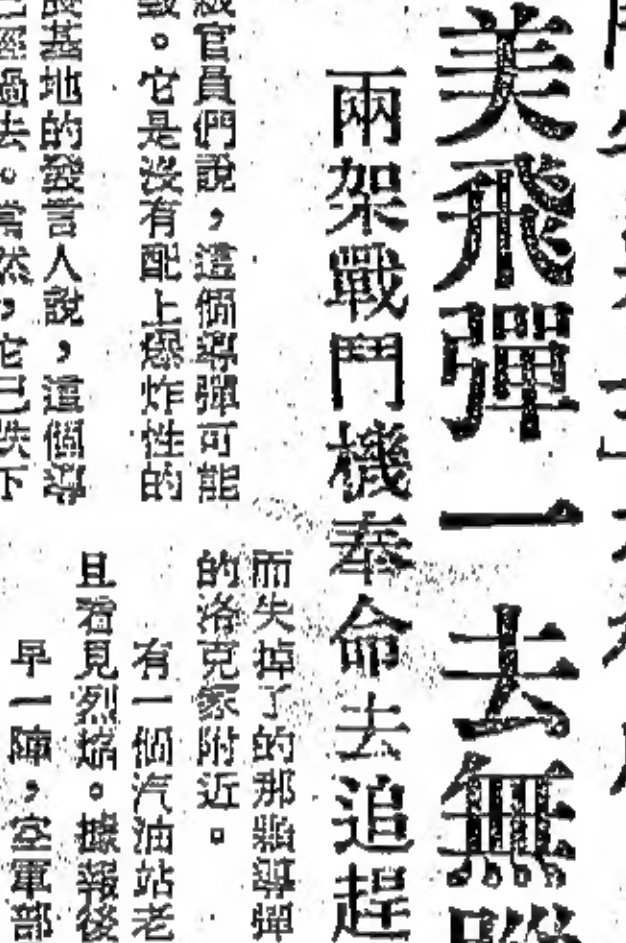 美飛彈一去無蹤
兩架戰鬥機奉命去追趕
級官員們說，這個導彈可能
。它是沒有配上爆炸性的
基地的發言人說，這個導
經過去。當然，它已跌下
而失掉了的那顆導彈
的洛克家附近。
有一個汽油站老
且看見烈焰。據報後
早一陣，空軍部